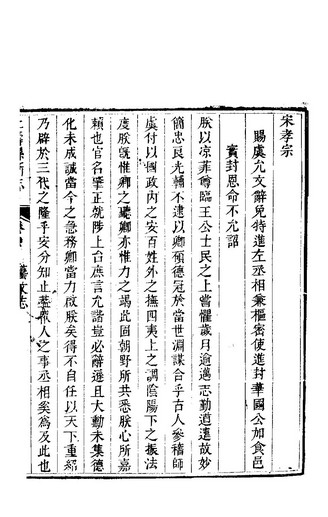 宋孝宗
賜虞允文辭免特進左丞相兼樞密使進封華國公加食邑
實封恩命不允詔
朕以凉菲尊臨王公士民之上嘗懼歲月逾邁志勤道遠故妙
簡忠良光輔不逮以卿碩德冠於當世淵謀合乎古人參稽師
虞付以國政內之安百姓外之撫四夷上之調陰陽下之振法
度朕旣惟卿之聽卿亦惟力之竭此固朝野所共悉朕心所嘉
賴也官名肇正就陟上台庶言允諧豈必辭遜且大勳未集德
化未成誠當今之急務卿當力啟朕矣得不自任以天下重紹
乃辟於三代之隆乎安分知止蓋衆人之事丞相奚爲及此也
藝文志